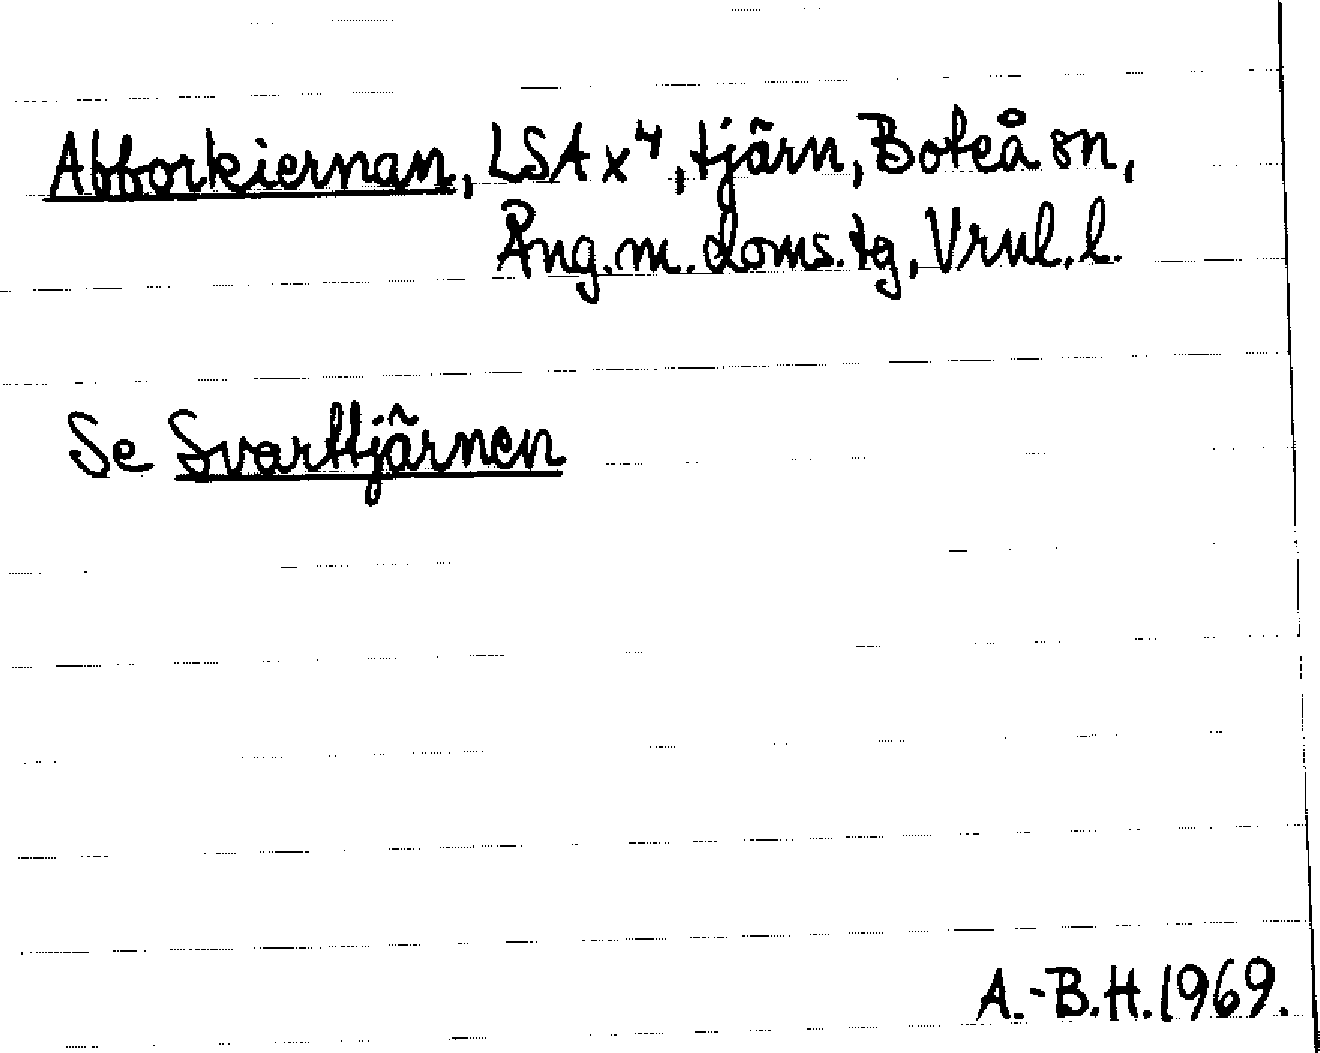 Abborkiernan, LSA x⁴, tjärn, Boteå sn,
Ång. m. doms. tg, Vrml. l.
Se Svarttjärnen
A.-B.H. 1969.